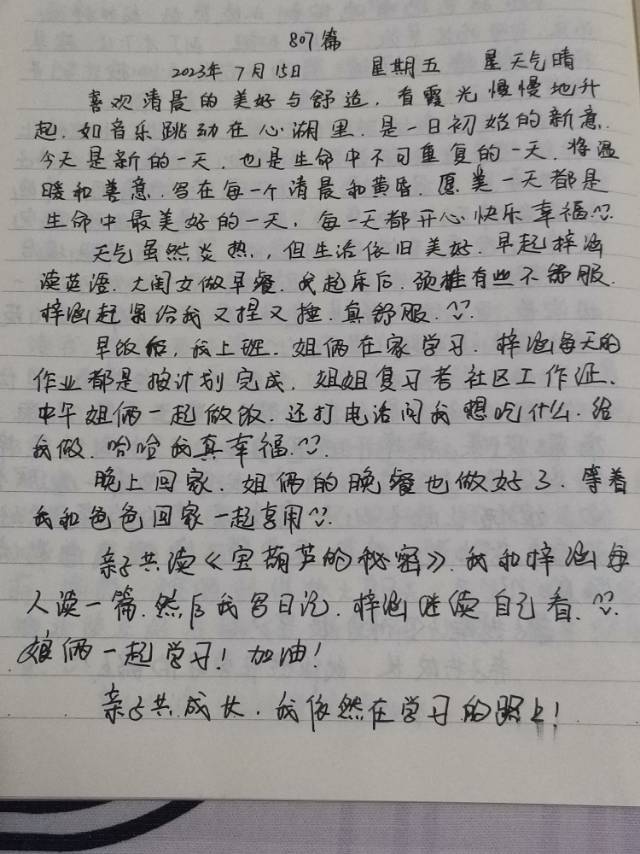 807篇
2023年7月15日 星期五 星天气晴
喜欢清晨的美好与舒适,看霞光慢慢地升
起.如音乐跳动在心湖里.是一日初始的新意.
今天是新的一天.也是生命中不可重复的一天.将温
暖和善意.写在每一个清晨和黄昏.愿美一天都是
生命中最美好的一天,每一天都开心快乐幸福
天气虽然炎热,,但生活依旧美好.早起梓涵
读英语.大闺女做早餐.我起床后.颈椎有些不舒服.
梓涵赶紧给我又捏又捶.真舒服.
早饭后,我上班.姐俩在家学习.梓涵每天的
作业都是按计划完成.姐姐复习考社区工作证.
中午姐俩一起做饭.还打电话问我想吃什么.给
我做.哈哈我真幸福.
晚上回家.姐俩的晚餐也做好了.等着
我和爸爸回家一起享用
亲子共读《宝葫芦的秘密》.我和梓涵每
人读一篇.然后我写日记.梓涵继续自己看.
娘俩一起学习!加油!
亲子共成长.我依然在学习的路上!